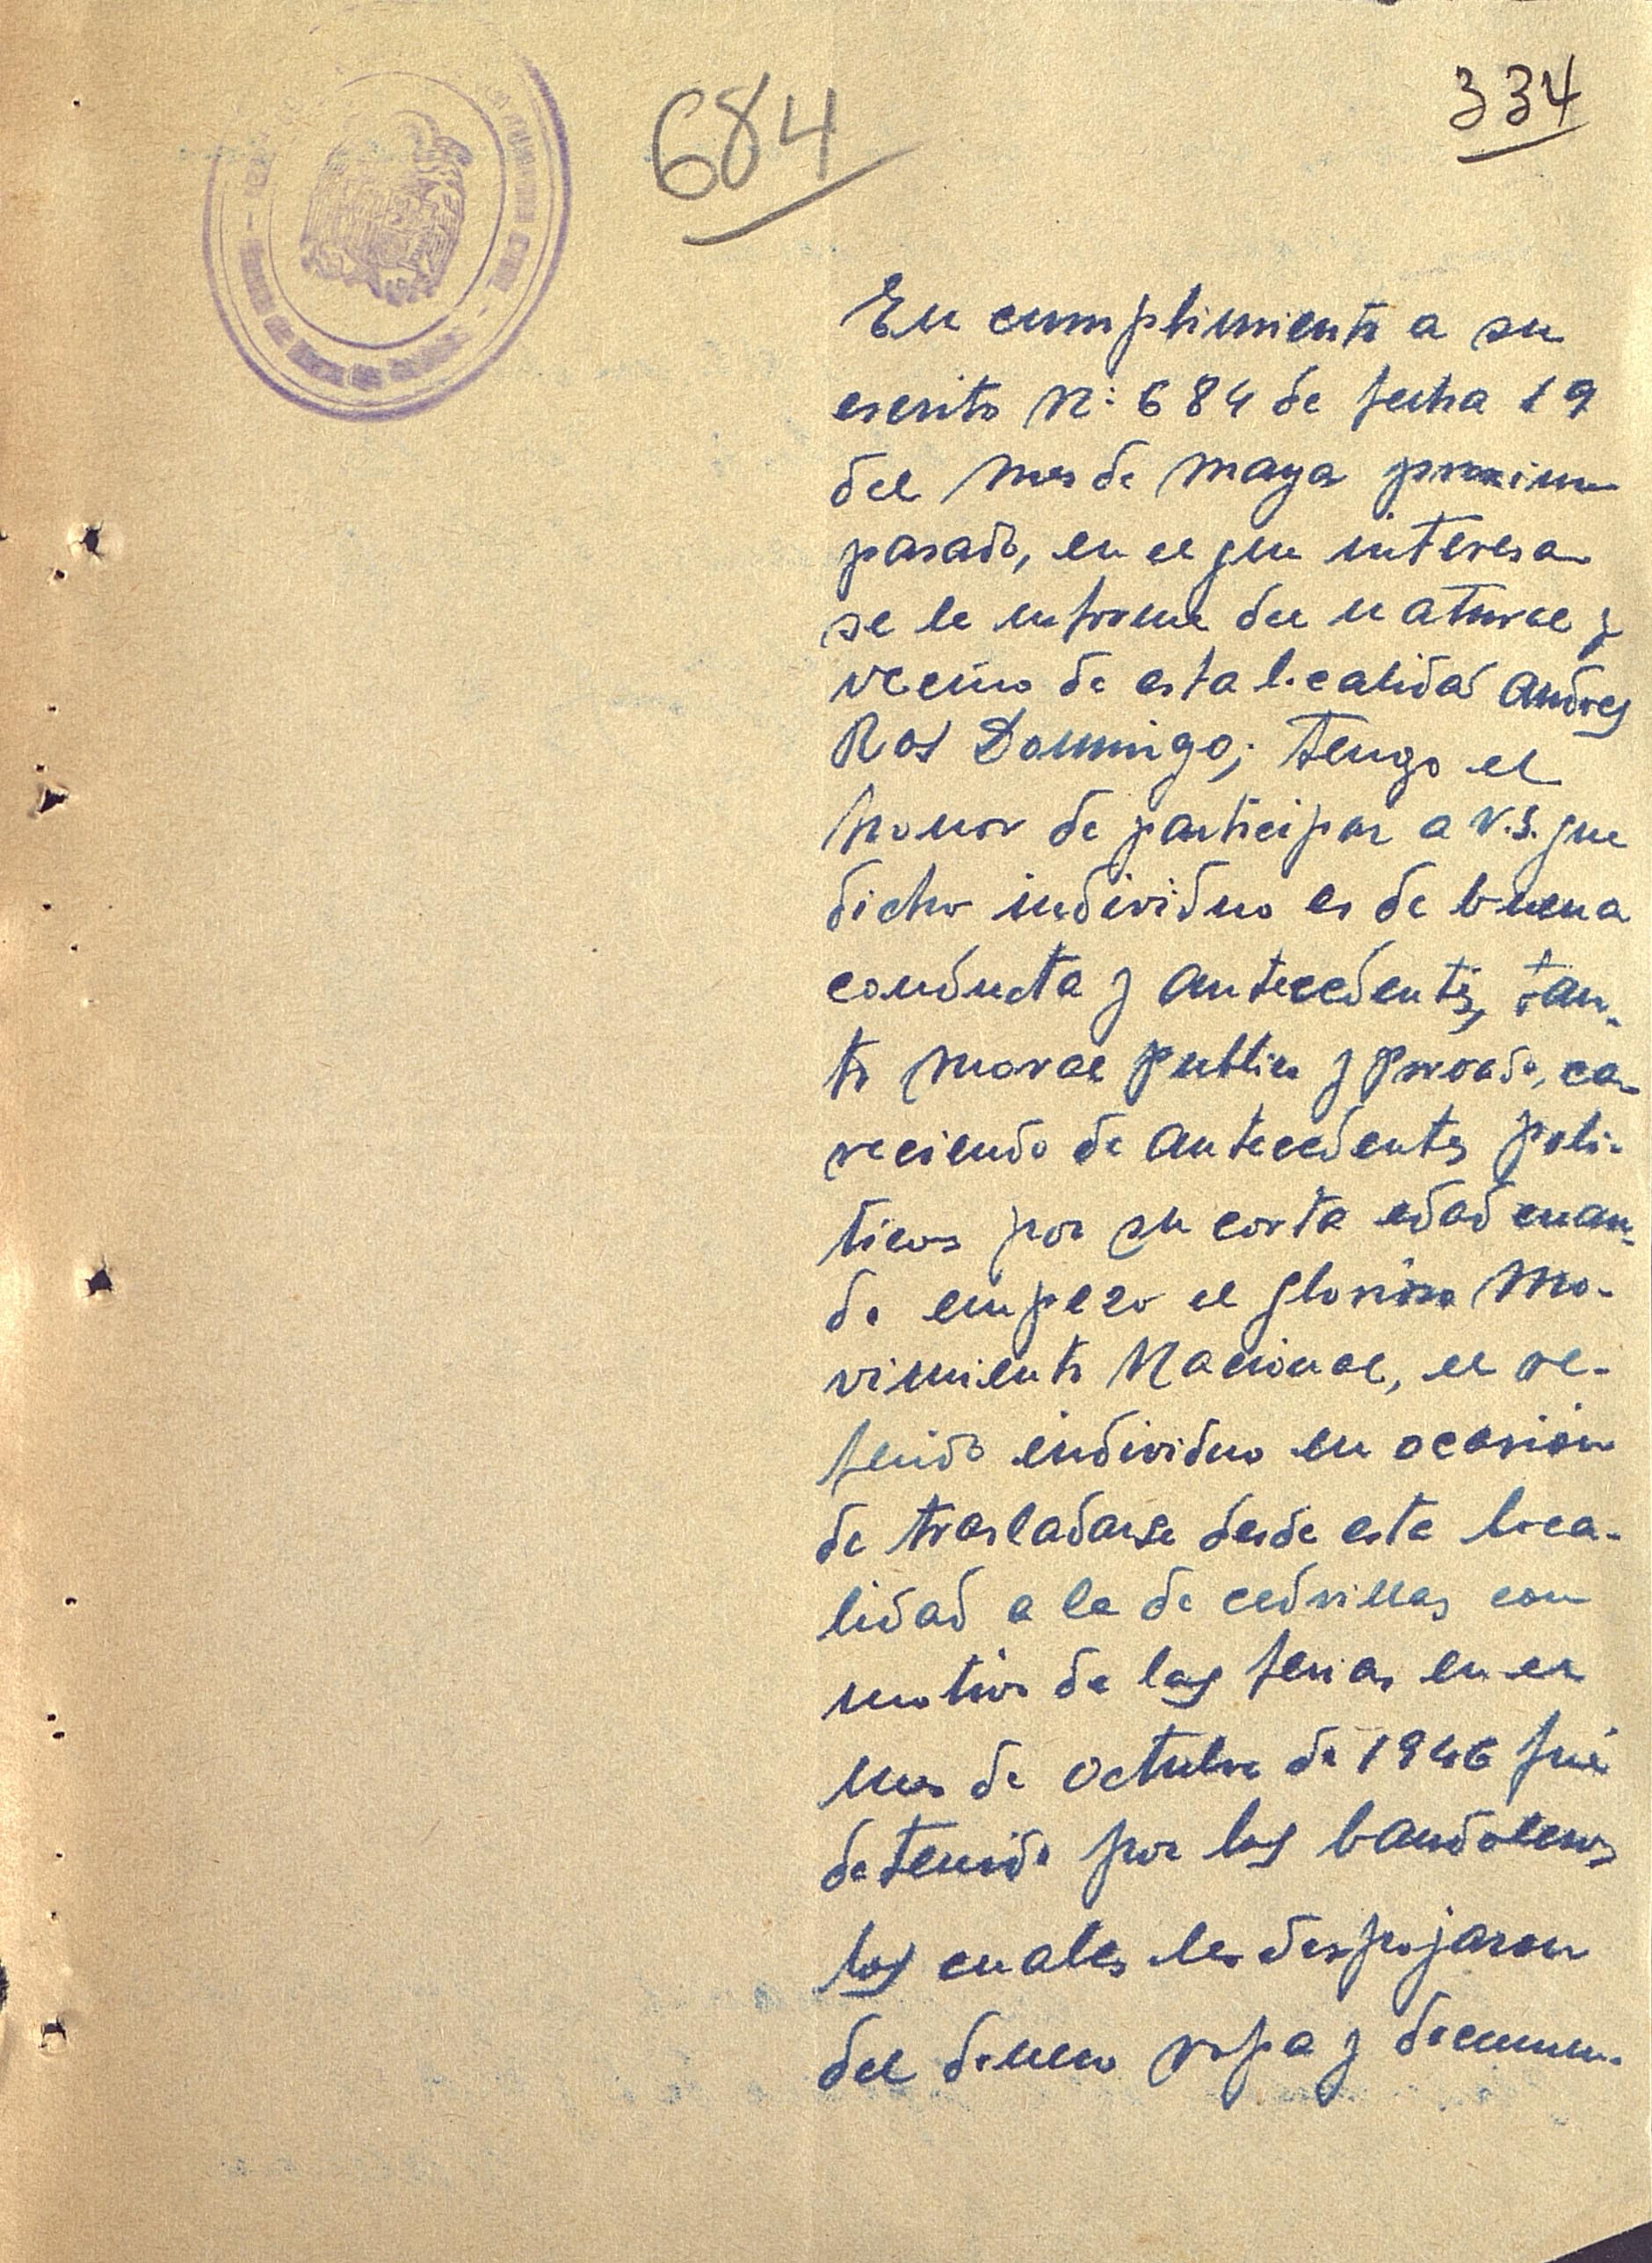 684
334
En cumplimiento a su
escrito Nº 684 de fecha 19
del mes de mayo proximo
pasado, en el que interesa
se le informe del natural y
vecino de esta localidad Andres
Ros Domingo; tengo el
honor de participar a V.S. que
dicho individuo es de buena
conducta y antecedentes, tan-
to moral publica y privada, ca-
reciendo de antecedentes poli-
ticos por su corta edad cuan-
do empezo el glorioso Mo-
vimiento Nacional, el re-
ferido individuo en ocasión
de trasladarse desde esta loca-
lidad a la de cedrillas con
motivo de las ferias en el
mes de octubre de 1946 fué
detenido por los bandoleros
los cuales le despojaron
del dinero ropa y documen-